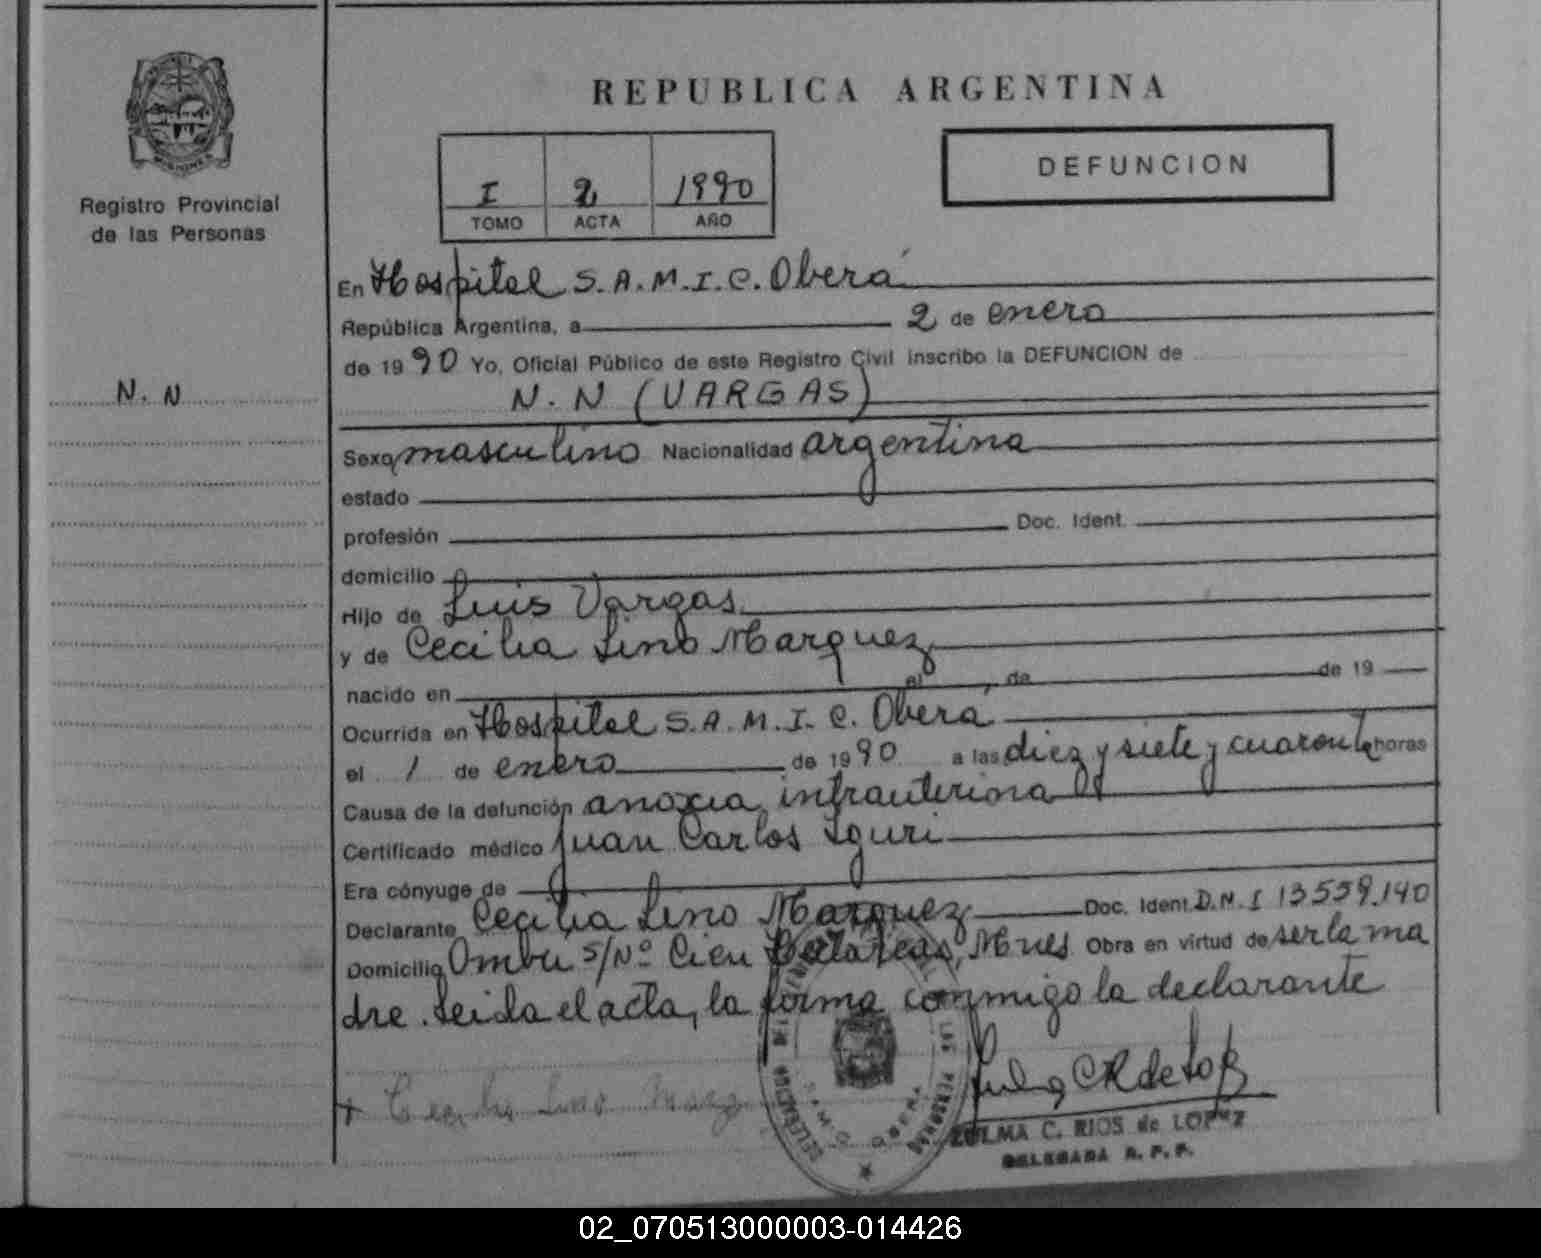 REPUBLICA ARGENTINA
DEFUNCION
I 2 1990
TOMO ACTA AÑO
MISIONES
Registro Provincial
de las Personas
N. N
En Hospital S.A.M.I.C. Oberá
República Argentina, a 2 de enero
de 1990 Yo, Oficial Público de este Registro Civil inscribo la DEFUNCION de
N. N (VARGAS)
Sexo masculino Nacionalidad argentina
estado
profesión Doc. Ident.
domicilio
Hijo de Luis Vargas
y de Cecilia Lino Marquez
nacido en el de de 19
Ocurrida en Hospital S.A.M.I.C. Oberá
el 1 de enero de 1990 a las diez y siete y cuarenta horas
Causa de la defunción anoxia intrauterina
Certificado médico Juan Carlos Iguri
Era cónyuge de
Declarante Cecilia Lino Marquez Doc. Ident. D.N.I 13559.140
Domicilio Ombu s/Nº Cien Hectareas, Mnes Obra en virtud de ser la ma
dre. Leida el acta, la forma conmigo la declarante
Cecilia Lino
ZULMA C. RIOS de LOPEZ
DELEGADA R. P. P.
02_070513000003-014426